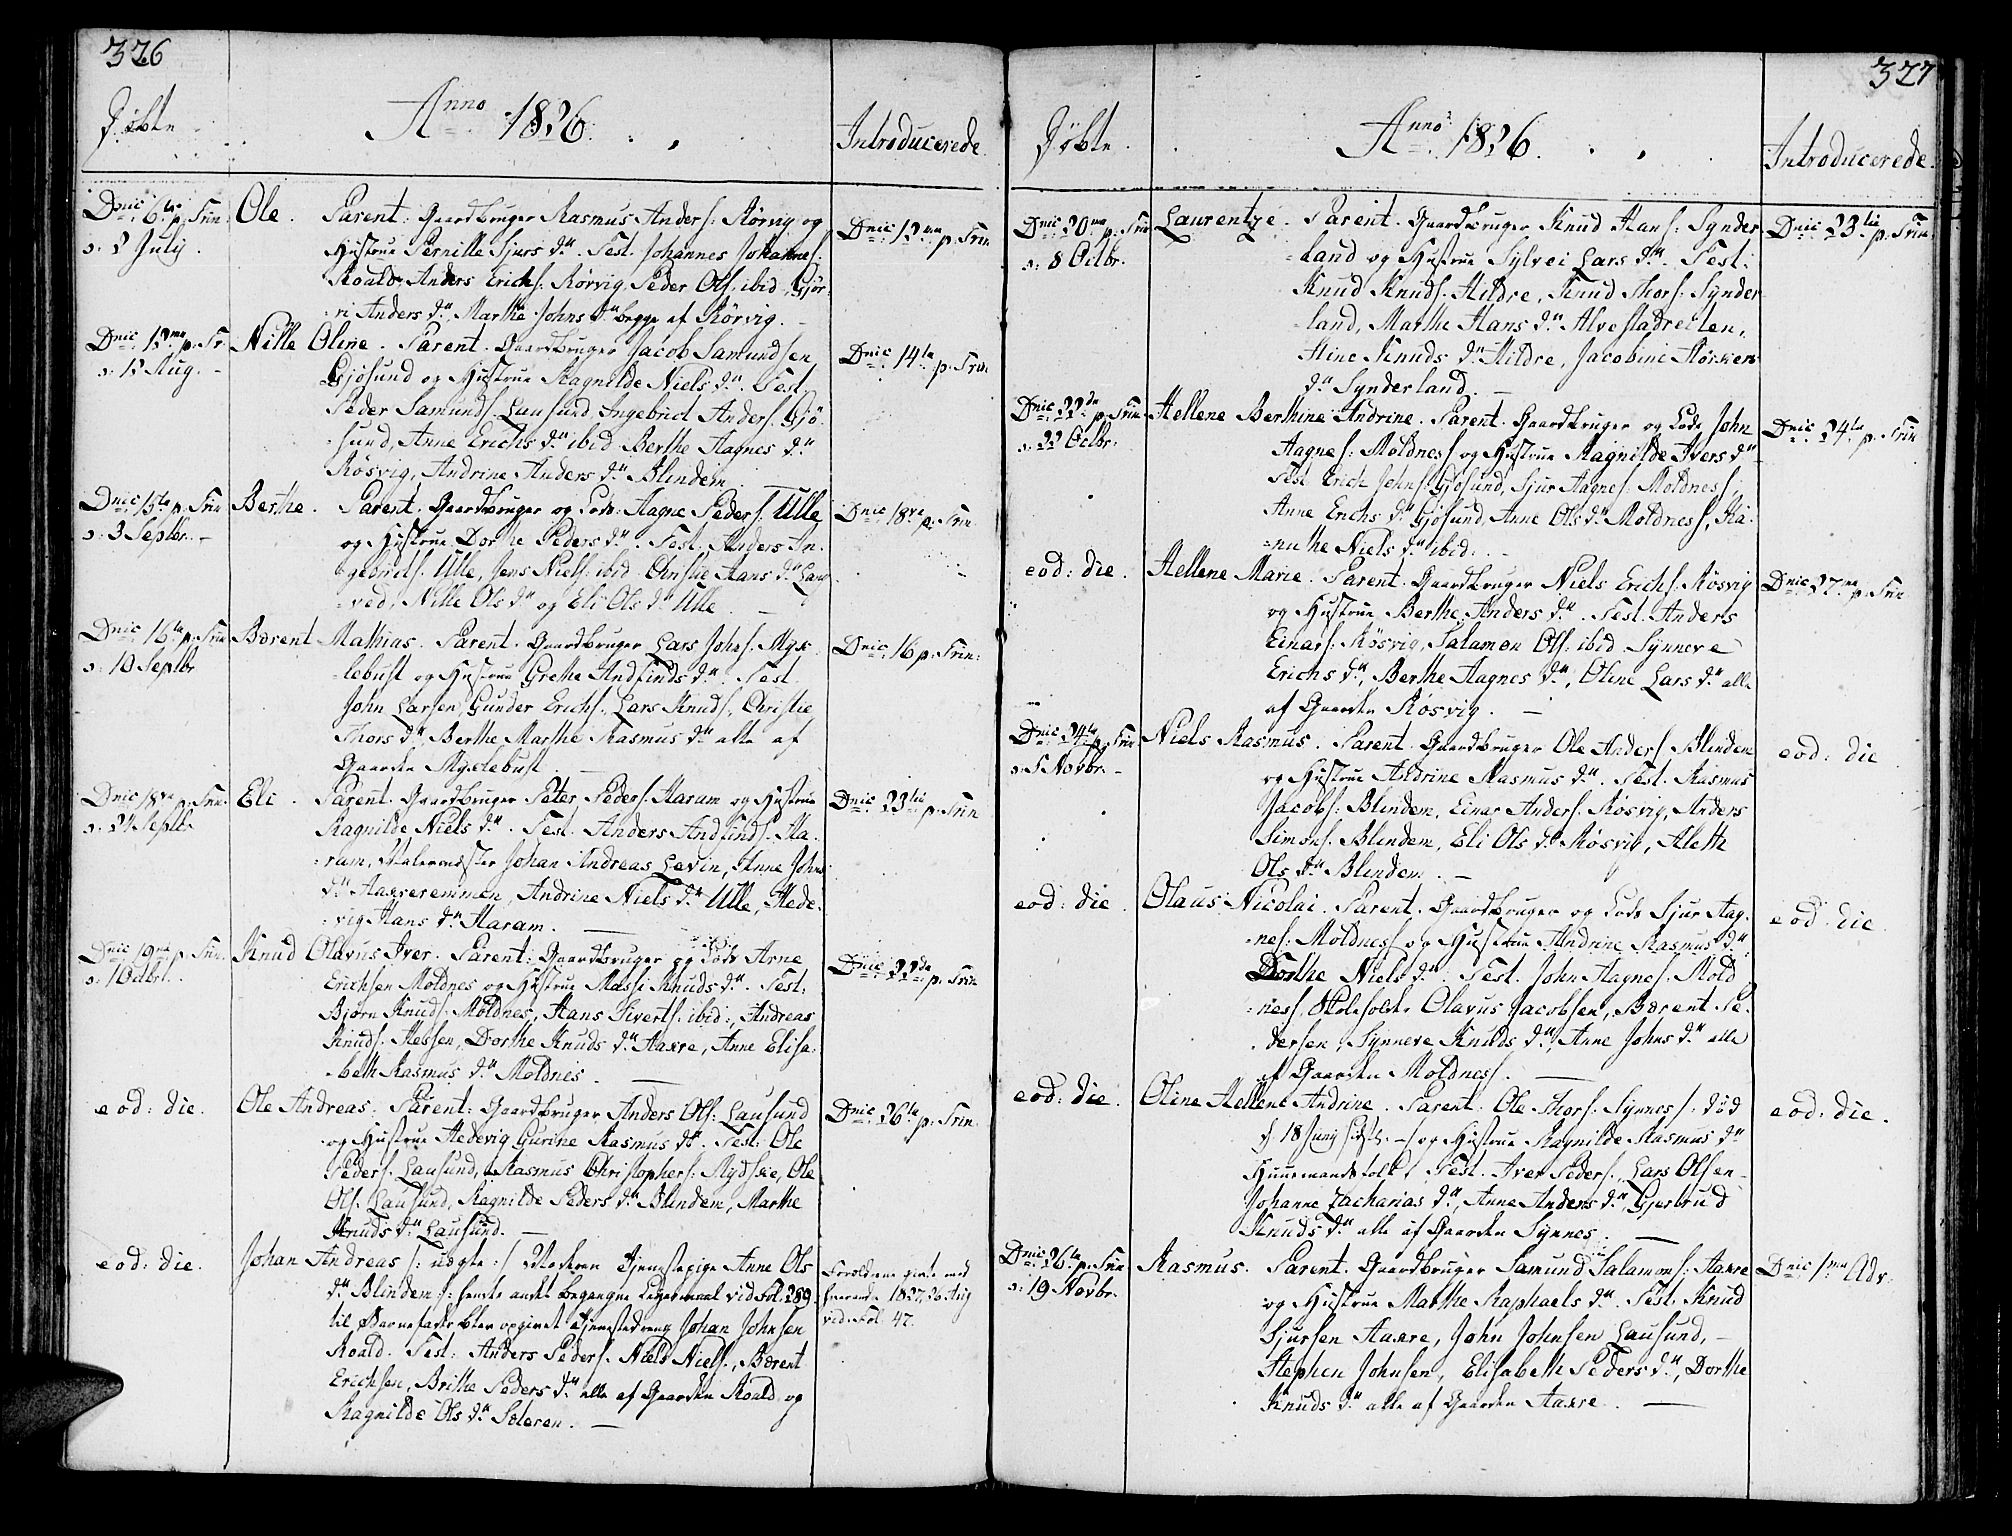 326
Døbte
Anno 1826.
Introducerede
Dnic 6te p: Trin:
d: 2 July.
Ole. Parent: Gaardbruger Rasmus Anders: Rørvig og
Hustrue Pernille Sjurs dtr. Test. Johannes Johannes:
Roald, Anders Erichs: Rørvig, Peder Ols: ibid, Gjør-
ri Anders dtr, Marthe Johns dtr begge af Rørvig.
Dnic 12ma p. Trin
Dnic 12ma p. Tr.
d: 13 Aug.
Nille Oline. Parent. Gaardbruger Jacob Samundsen
Gjøsund og Hustrue Ragnilde Niels dtr. Test.
Peder Samunds. Lausund Ingebrict Anders. Gjø-
sund, Anne Erichs dtr ibid Berthe Aagnes dtr
Røsvig, Andrine Anders dtr Blindem.
Dnic 14ta p. Trin.
Dnic 15ta p. Trin
d: 3 Septbr.
Berthe. Parent. Gaardbruger og Lods: Aagne Peders: Ulle,
og Hustrue Dorthe Peders dtr. Test. Anders In-
gebricts. Ulle, Jens Niels: ibid. Christie Hans dtr Lang-
ved, Nille Ols dtr og Eli Ols dtr Ulle.
Dnic 18va p: Trin.
Dnic 16ta p: Trin
d: 10 Septbr
Barent Mathias. Parent. Gaardbruger Lars Johns. Myx-
lebust og Hustrue Grethe Andfinds dtr. Test.
John Larsen, Gunder Erichs. Lars Knuds, Christie
Thors dtr, Berthe Marthe Rasmus dtr alle af
Gaarden Myxlebust.
Dnic 16 p: Trin:
Dnic 18va p. Trin.
d: 24 Septbr
Eli. Parent. Gaardbruger Peter Peders. Haram og Hustrue
Ragnilde Niels dtr. Test. Anders Andfinds. Ha-
ram, Malermester Johan Andreas Levin, Anne Johns
dtr Aaxeremmen, Andrine Niels dtr Ulle, Hede-
vig Hans dtr Haram.
Dnic 23tii p: Trin
Dnic 19na p. Trin.
d: 1 Octbr.
Knud Olavus Iver. Parent: Gaardbruger og Lods Arne
Erichsen Moldnes og Hustrue Massi Knuds dtr. Test:
Bjørn Knuds. Moldnes, Hans Siverts. ibid:, Andreas
Knuds. Hessen, Dorthe Knuds dtr Aaxre, Anne Elisa-
beth Rasmus dtr Moldnes.
Dnic 22da p. Trin
eod: die.
Ole Andreas. Parent: Gaardbruger Anders Ols: Lausund
og Hustrue Hedevig Gurine Rasmus dtr. Test: Ole
Peders. Lausund, Rasmus Christophers. Mydske, Ole
Ols. Lausund, Ragnilde Peders dtr Blindem, Marthe
Knuds dtr Lausund.
Dnic 26ta p: Trin.
eod: die.
Johan Andreas /: uægte :/ Moderen Tjenestepige Anne Ols
dtr Blindem /: hendes andet begangne Leiermaal vid Fol. 289.
til Barnefader blev opgivet Tjenestedreng Johan Johnsen
Roald. Test: Anders Peders. Niels Niels., Barent
Erichsen, Brithe Peders dtr alle af Gaarden Roald og
Ragnilde Ols dtr Sæteren.
Forældrene givte med
hverandre 1827, 26 Aug
vid: Fol. 47.
327
Døbte
Anno 1826.
Introducerede.
Dnic 20ma p. Trin
d: 8 Octbr.
Laurentze. Parent. Gaardbruger Knud Hans: Synder-
land og Hustrue Sylvei Lars dtr. Test:
Knud Knuds. Hildre, Knud Thors: Synder-
land, Marthe Hans dtr Alvestadreiten,
Stine Knuds dtr Hildre, Jacobine Rasmus
dtr Synderland.
Dnic 23tii p: Trin.
Dnic 22da p. Trin
d: 22 Octbr.
Hellene Berthine Andrine. Parent. Gaardbruger og Lods John
Aagnes: Moldness og Hustrue Ragnilde Ivers dtr
Test. Erich Johns. Gjøsund, Sjur Aagnes: Moldness,
Anne Erichs dtr Gjøsund, Anne Ols dtr Moldness, Ra-
nuthe Niels dtr ibid:
Dnic 24ta p. Trin
eod: die.
Hellene Marie. Parent. Gaardbruger Niels Erichs. Røsvig
og Hustrue Berthe Anders dtr. Test. Anders
Einars. Røsvig, Salamon Ols. ibid Synneve
Erichs dtr, Berthe Aagnes dtr, Oline Lars dtr alle
af Gaarden Røsvig.
Dnic 27ma p. Trin
Dnic 24ta p. Trin
d: 5 Novbr.
Niels Rasmus. Parent. Gaardbruger Ole Anders. Blindem
og Hustrue Andrine Rasmus dtr. Test. Rasmus
Jacobs: Blindem, Einar Anders. Røsvig, Anders
Simons. Blindem, Eli Ols dtr Røsvig, Aleth
Ols dtr Blindem.
eod: die
eod: die
Olaus Nicolai. Parent. Gaardbruger og Lods Sjur Aag-
nes. Moldness og Hustrue Andrine Rasmus dtr
Dorthe Niels dtr. Test. John Aagnes. Mold-
ness. Skoleholder Olavus Jacobsen, Barent Pe-
dersen, Synneve Knuds dtr, Anne Johns dtr alle
af Gaarden Moldness.
eod: die.
eod: die.
Oline Hellene Andrine. Parent: Ole Thors. Synnes /: død
d. 18 Juny sidstl. :/ og Hustrue Ragnilde Rasmus dtr
Huusmandsfolk, Test. Iver Peders., Lars Olsen
Johanne Zacharias dtr, Anne Anders dtr, Gjertrud
Knuds dtr alle af Gaarden Synnes.
eod: die.
Dnic 26ta p: Trin
d: 19 Novbr.
Rasmus. Parent. Gaardbruger Samund Salamons: Aaxre
og Hustrue Marthe Raphaels dtr. Test. Knud
Sjursen Aaxre, John Johnsen Lausund,
Stephen Johnsen, Elisabeth Peders dtr, Dorthe
Knuds dtr alle af Gaarden Aaxre.
Dnic 1ma Adv: